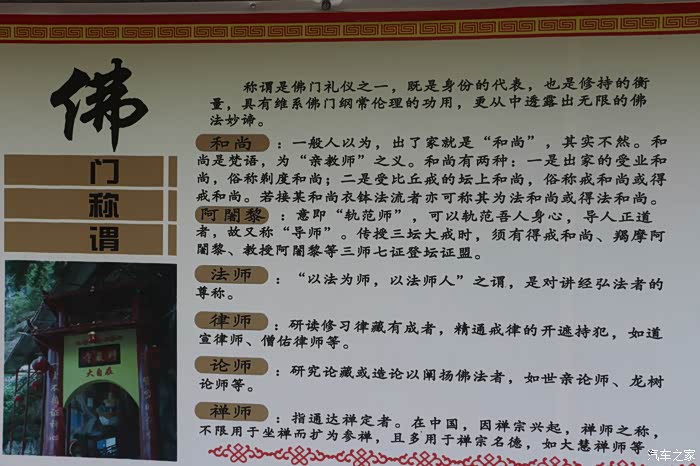 佛
门
称
谓
称谓是佛门礼仪之一，既是身份的代表，也是修持的衡
量，具有维系佛门纲常伦理的功用，更从中透露出无限的佛
法妙谛。
和尚 ：一般人以为，出了家就是“和尚”，其实不然。和
尚是梵语，为“亲教师”之义。和尚有两种：一是出家的受业和
尚，俗称剃度和尚；二是受比丘戒的坛上和尚，俗称戒和尚或得
戒和尚。若接某和尚衣钵法流者亦可称其为法和尚或得法和尚。
阿闍黎 ：意即“轨范师”，可以轨范吾人身心，导人正道
者，故又称“导师”。传授三坛大戒时，须有得戒和尚、羯摩阿
闍黎、教授阿闍黎等三师七证登坛证盟。
法师 ：“以法为师，以法师人”之谓，是对讲经弘法者的
尊称。
律师 ：研读修习律藏有成者，精通戒律的开遮持犯，如道
宣律师、僧佑律师等。
论师 ：研究论藏或造论以阐扬佛法者，如世亲论师、龙树
论师等。
禅师 ：指通达禅定者。在中国，因禅宗兴起，禅师之称，
不限用于坐禅而扩为参禅，且多用于禅宗名德，如大慧禅师等
大自在
汽车之家